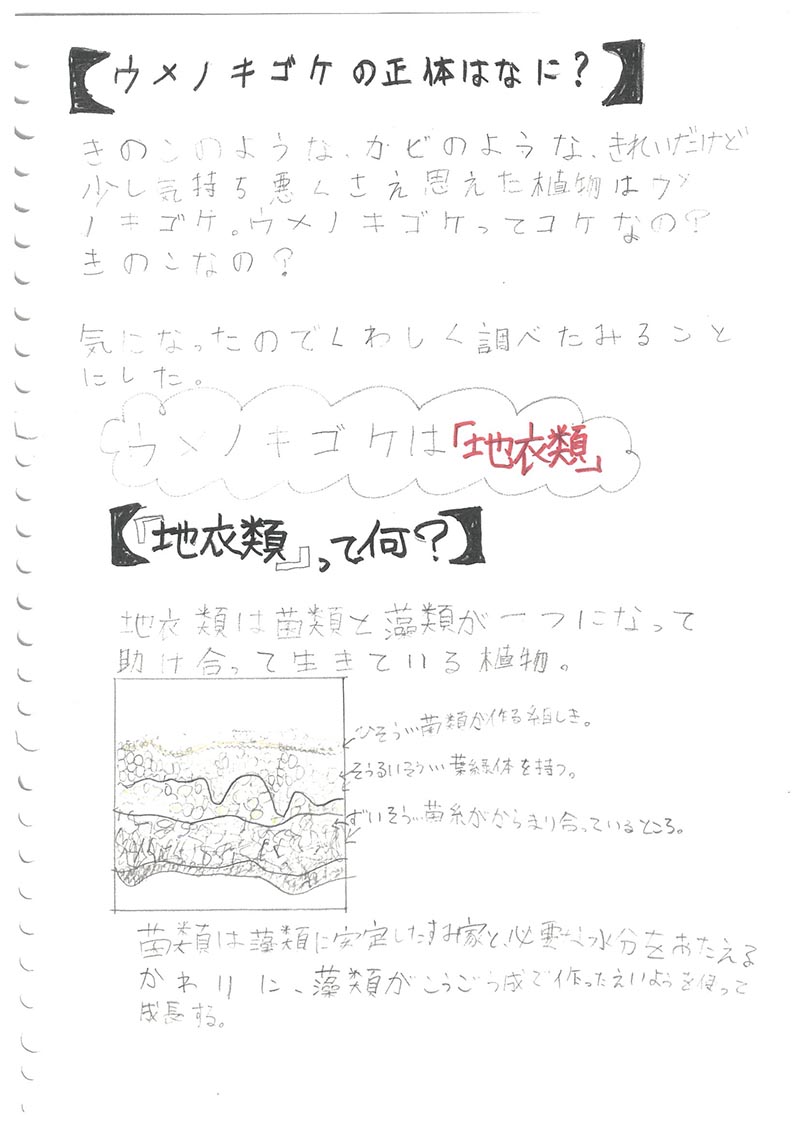 【ウメノキゴケの正体はなに?】
きのこのような、かびのような、きれいだけど
少し気持ち悪くさえ思えた植物はウメ
ノキゴケ。ウメノキゴケってコケなの?
きのこなの?
気になったのでくわしく調べたみること
にした。
ウメノキゴケは「地衣類」
【『地衣類』って何?】
地衣類は菌類と藻類が一つになって
助け合って生きている植物。
ひそう…菌類が作る組しき。
そうるいそう…葉緑体を持つ。
ずいそう…菌糸がからまり合っているところ。
菌類は藻類に安定したすみ家と、必要な水分をあたえる
かわりに、藻類がこうごう成で作ったえいようを使って
成長する。